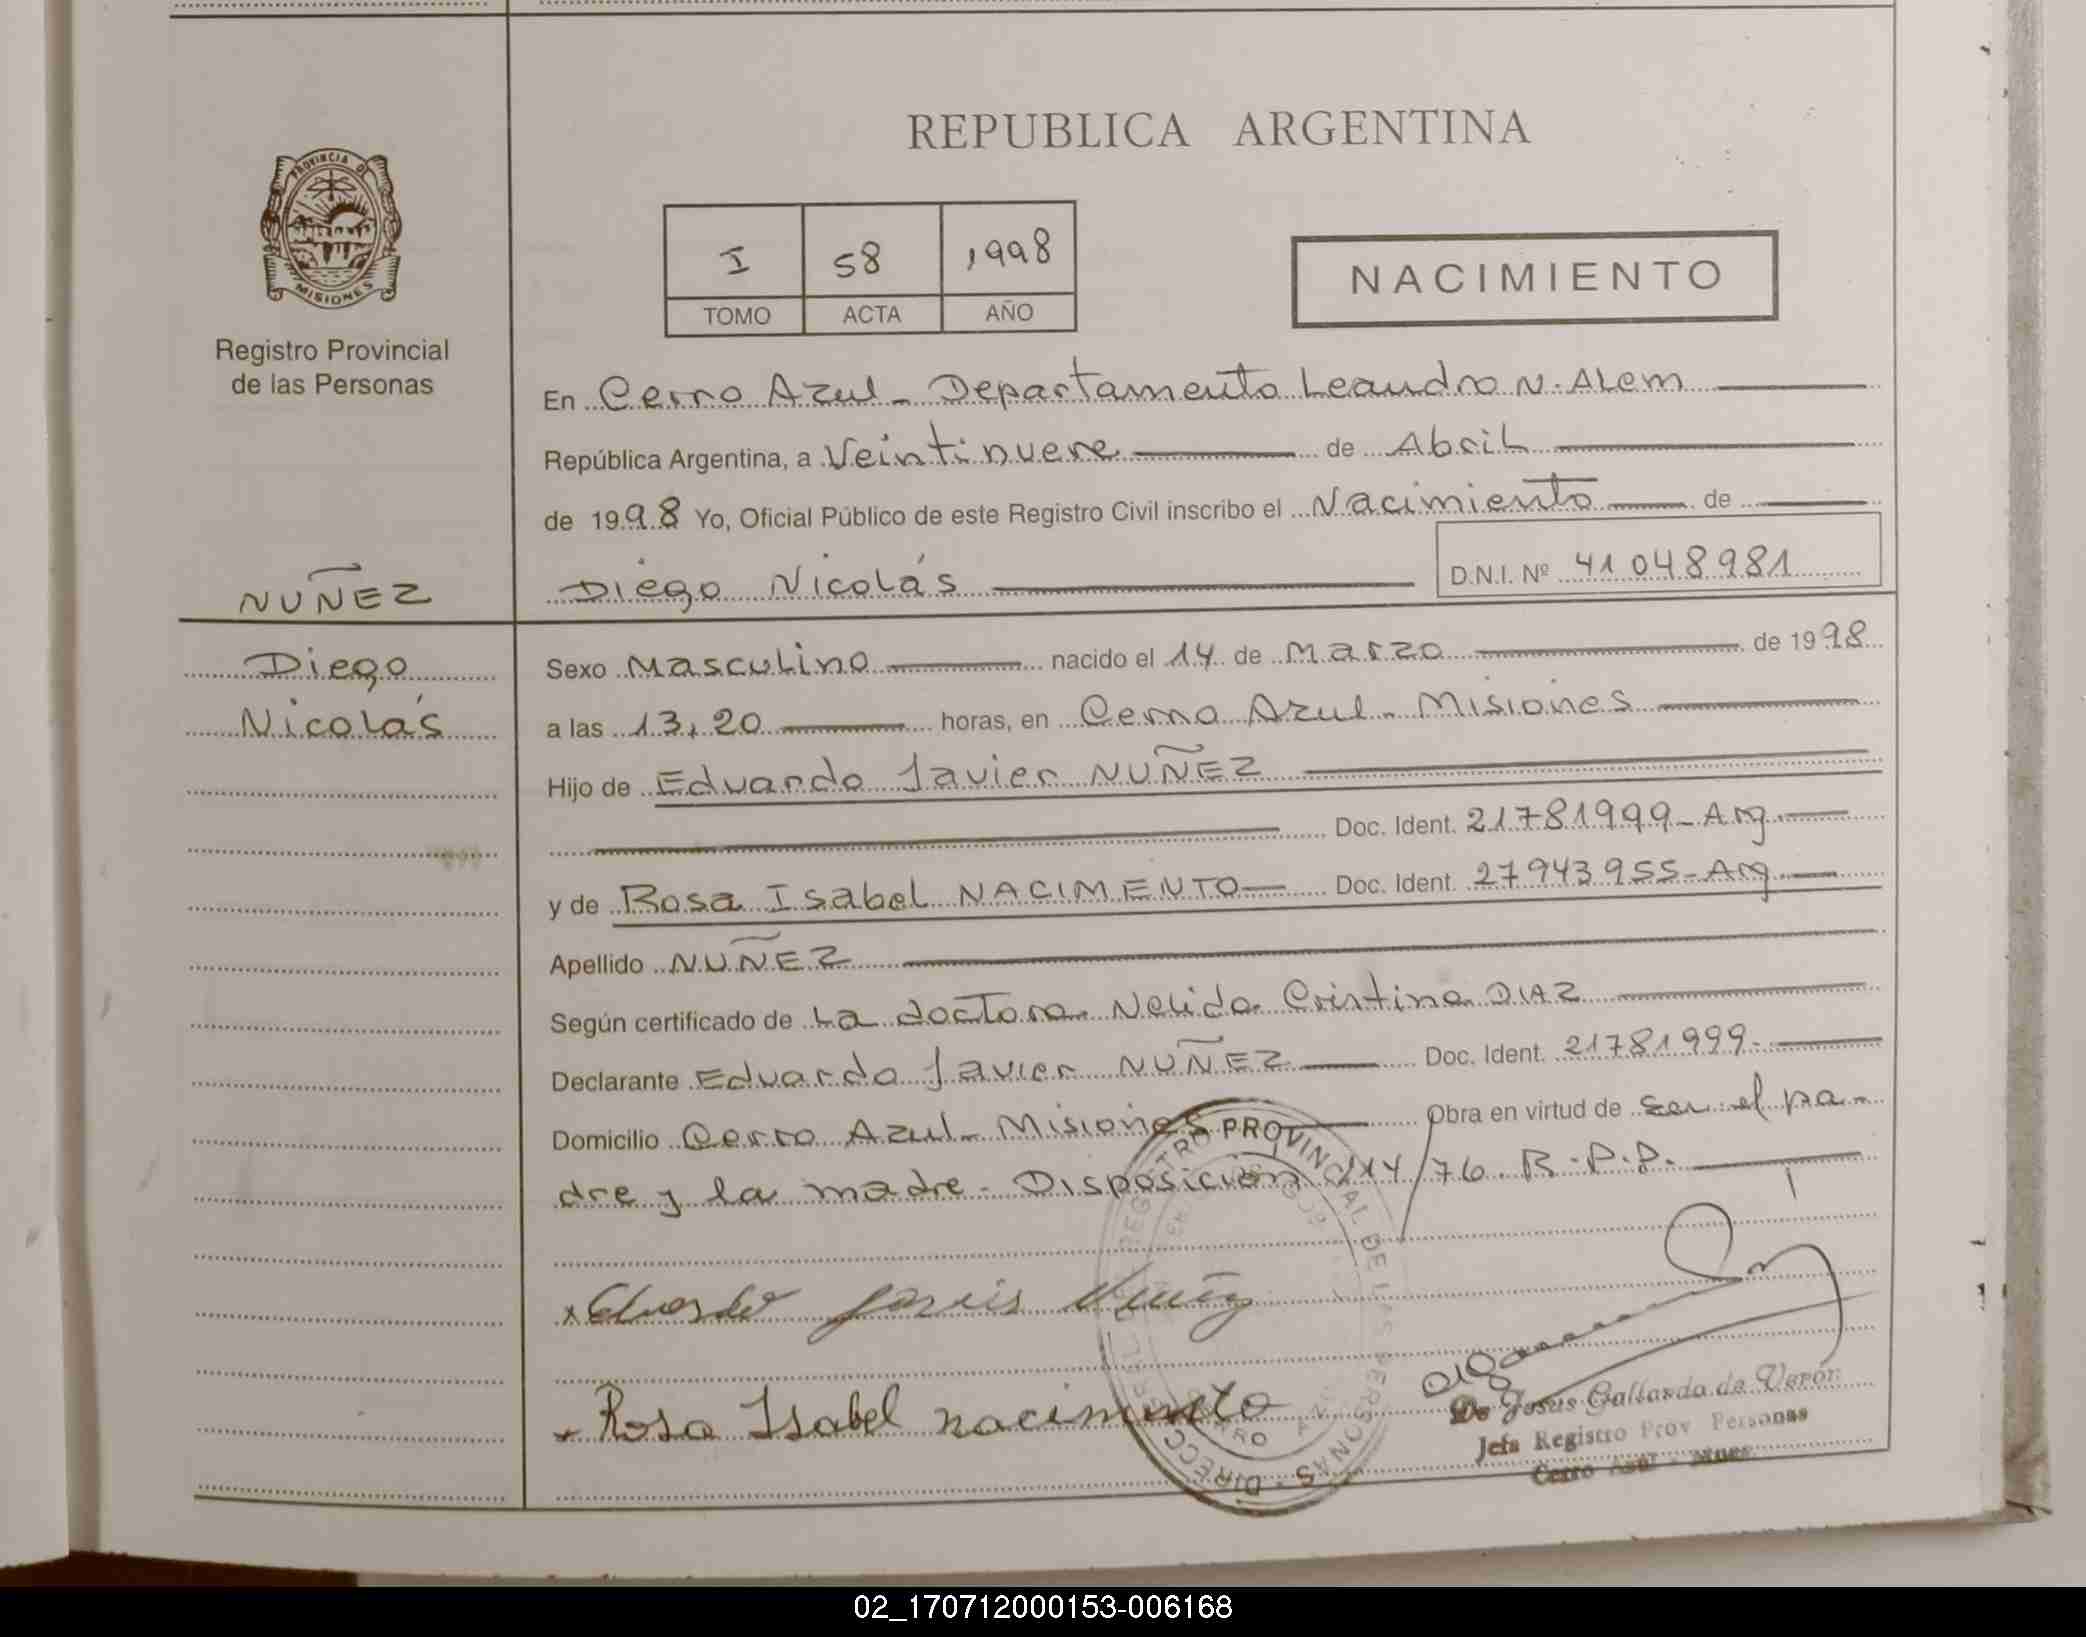 REPUBLICA ARGENTINA
PROVINCIA D
MISIONES
Registro Provincial
de las Personas
I 58 1998
TOMO ACTA AÑO
NACIMIENTO
En Cerro Azul - Departamento Leandro N. Alem
República Argentina, a Veintinueve de Abril
de 1998 Yo, Oficial Público de este Registro Civil inscribo el Nacimiento de
NUÑEZ Diego Nicolás D.N.I. Nº 41 048 981
Diego
Nicolás
Sexo Masculino nacido el 14 de Marzo de 1998
a las 13,20 horas, en Cerro Azul - Misiones
Hijo de Eduardo Javier NUÑEZ
Doc. Ident. 21781999 - Arg.
y de Rosa Isabel NACIMENTO Doc. Ident. 27943955 - Arg
Apellido NUÑEZ
Según certificado de La doctora Nelida Cristina DIAZ
Declarante Eduardo Javier NUÑEZ Doc. Ident. 21781999.
Domicilio Cerro Azul - Misiones Obra en virtud de ser el pa-
dre y la madre - Disposición 214/76 R.P.P.
REGISTRO PROVINCIAL DE LAS PERSONAS - DIRECC
x Eduardo Javier Nuñez
x Rosa Isabel nacimento
De Jesus Gallardo de Verón
Jefa Registro Prov Personas
Cerro Azul - Mnes
02_170712000153-006168